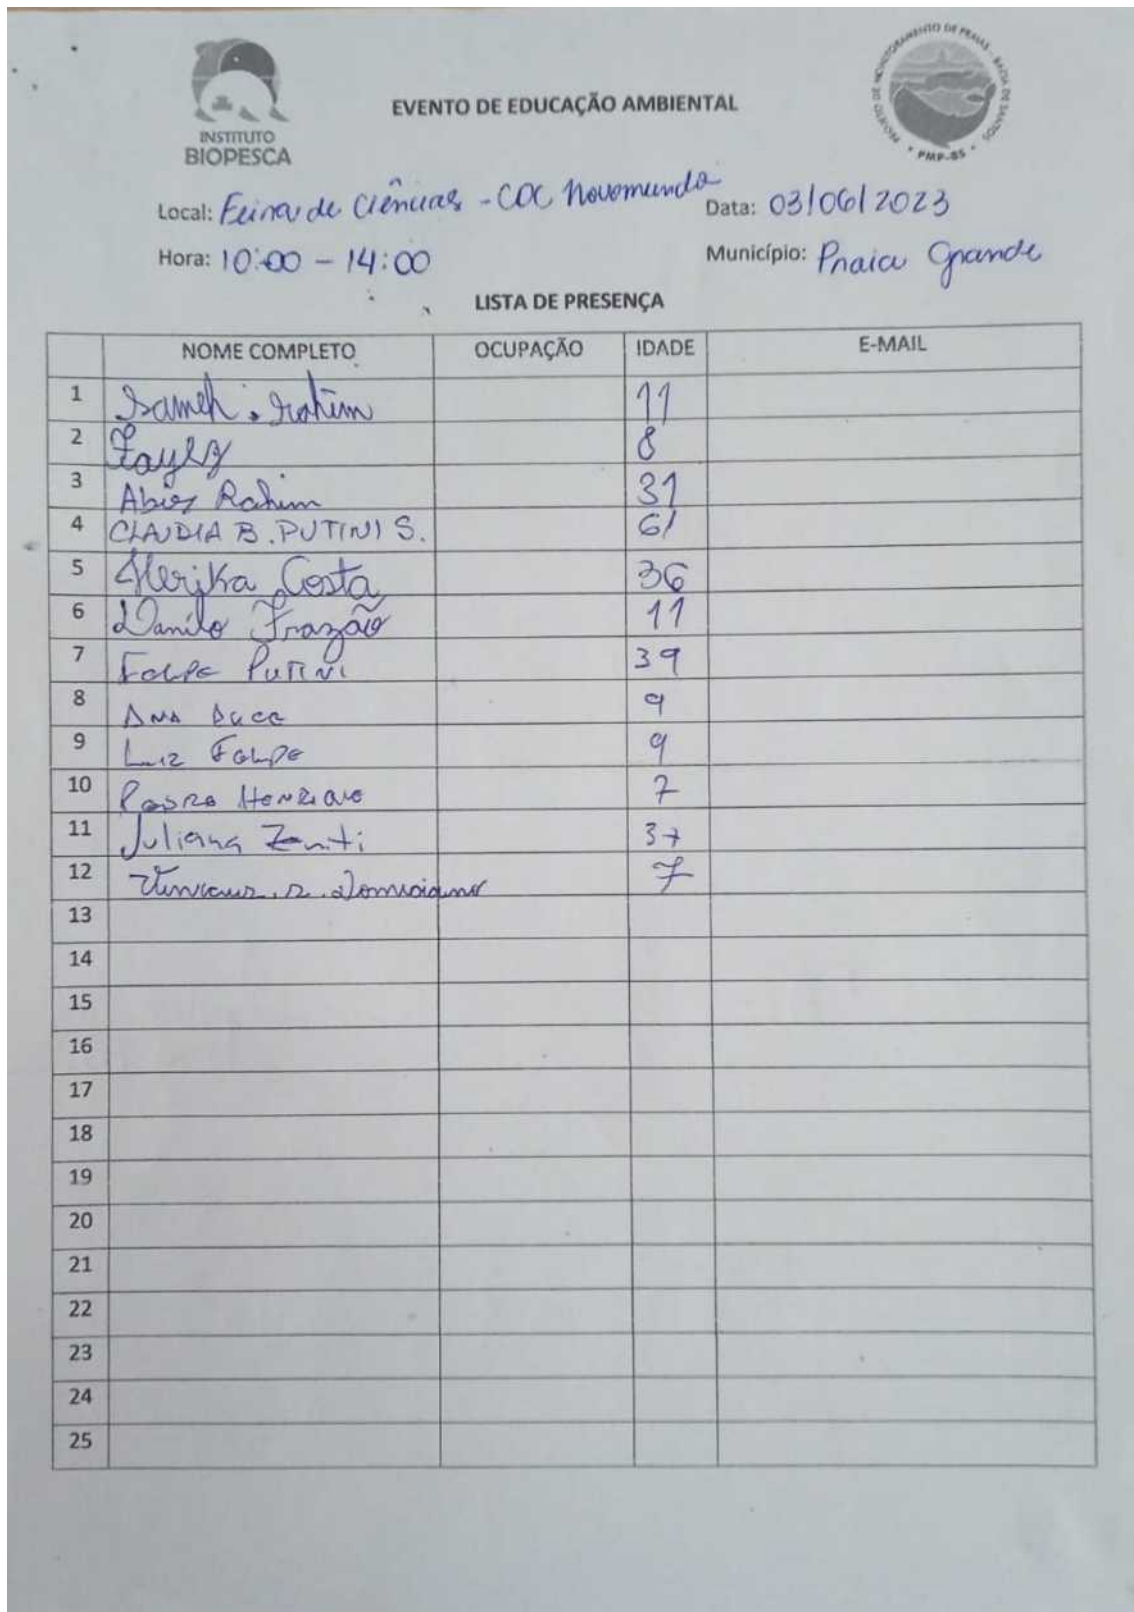 INSTITUTO
BIOPESCA
EVENTO DE EDUCAÇÃO AMBIENTAL
PROJETO DE MONITORAMENTO DE PRAIAS - BACIA DE SANTOS
PMP-BS
Local: Feira de Ciências - COC Novomundo Data: 03/06/2023
Hora: 10:00 - 14:00 Município: Praia Grande
LISTA DE PRESENÇA
NOME COMPLETO OCUPAÇÃO IDADE E-MAIL
1 11
2 8
3 Rahim 31
4 CLAUDIA B. PUTINI S. 61
5 Herika Costa 36
6 Danilo Frazão 11
7 Felipe Putini 39
8 Ana 9
9 Luiz Felipe 9
10 Pedro Henrique 7
11 Juliana 37
12 7
13
14
15
16
17
18
19
20
21
22
23
24
25